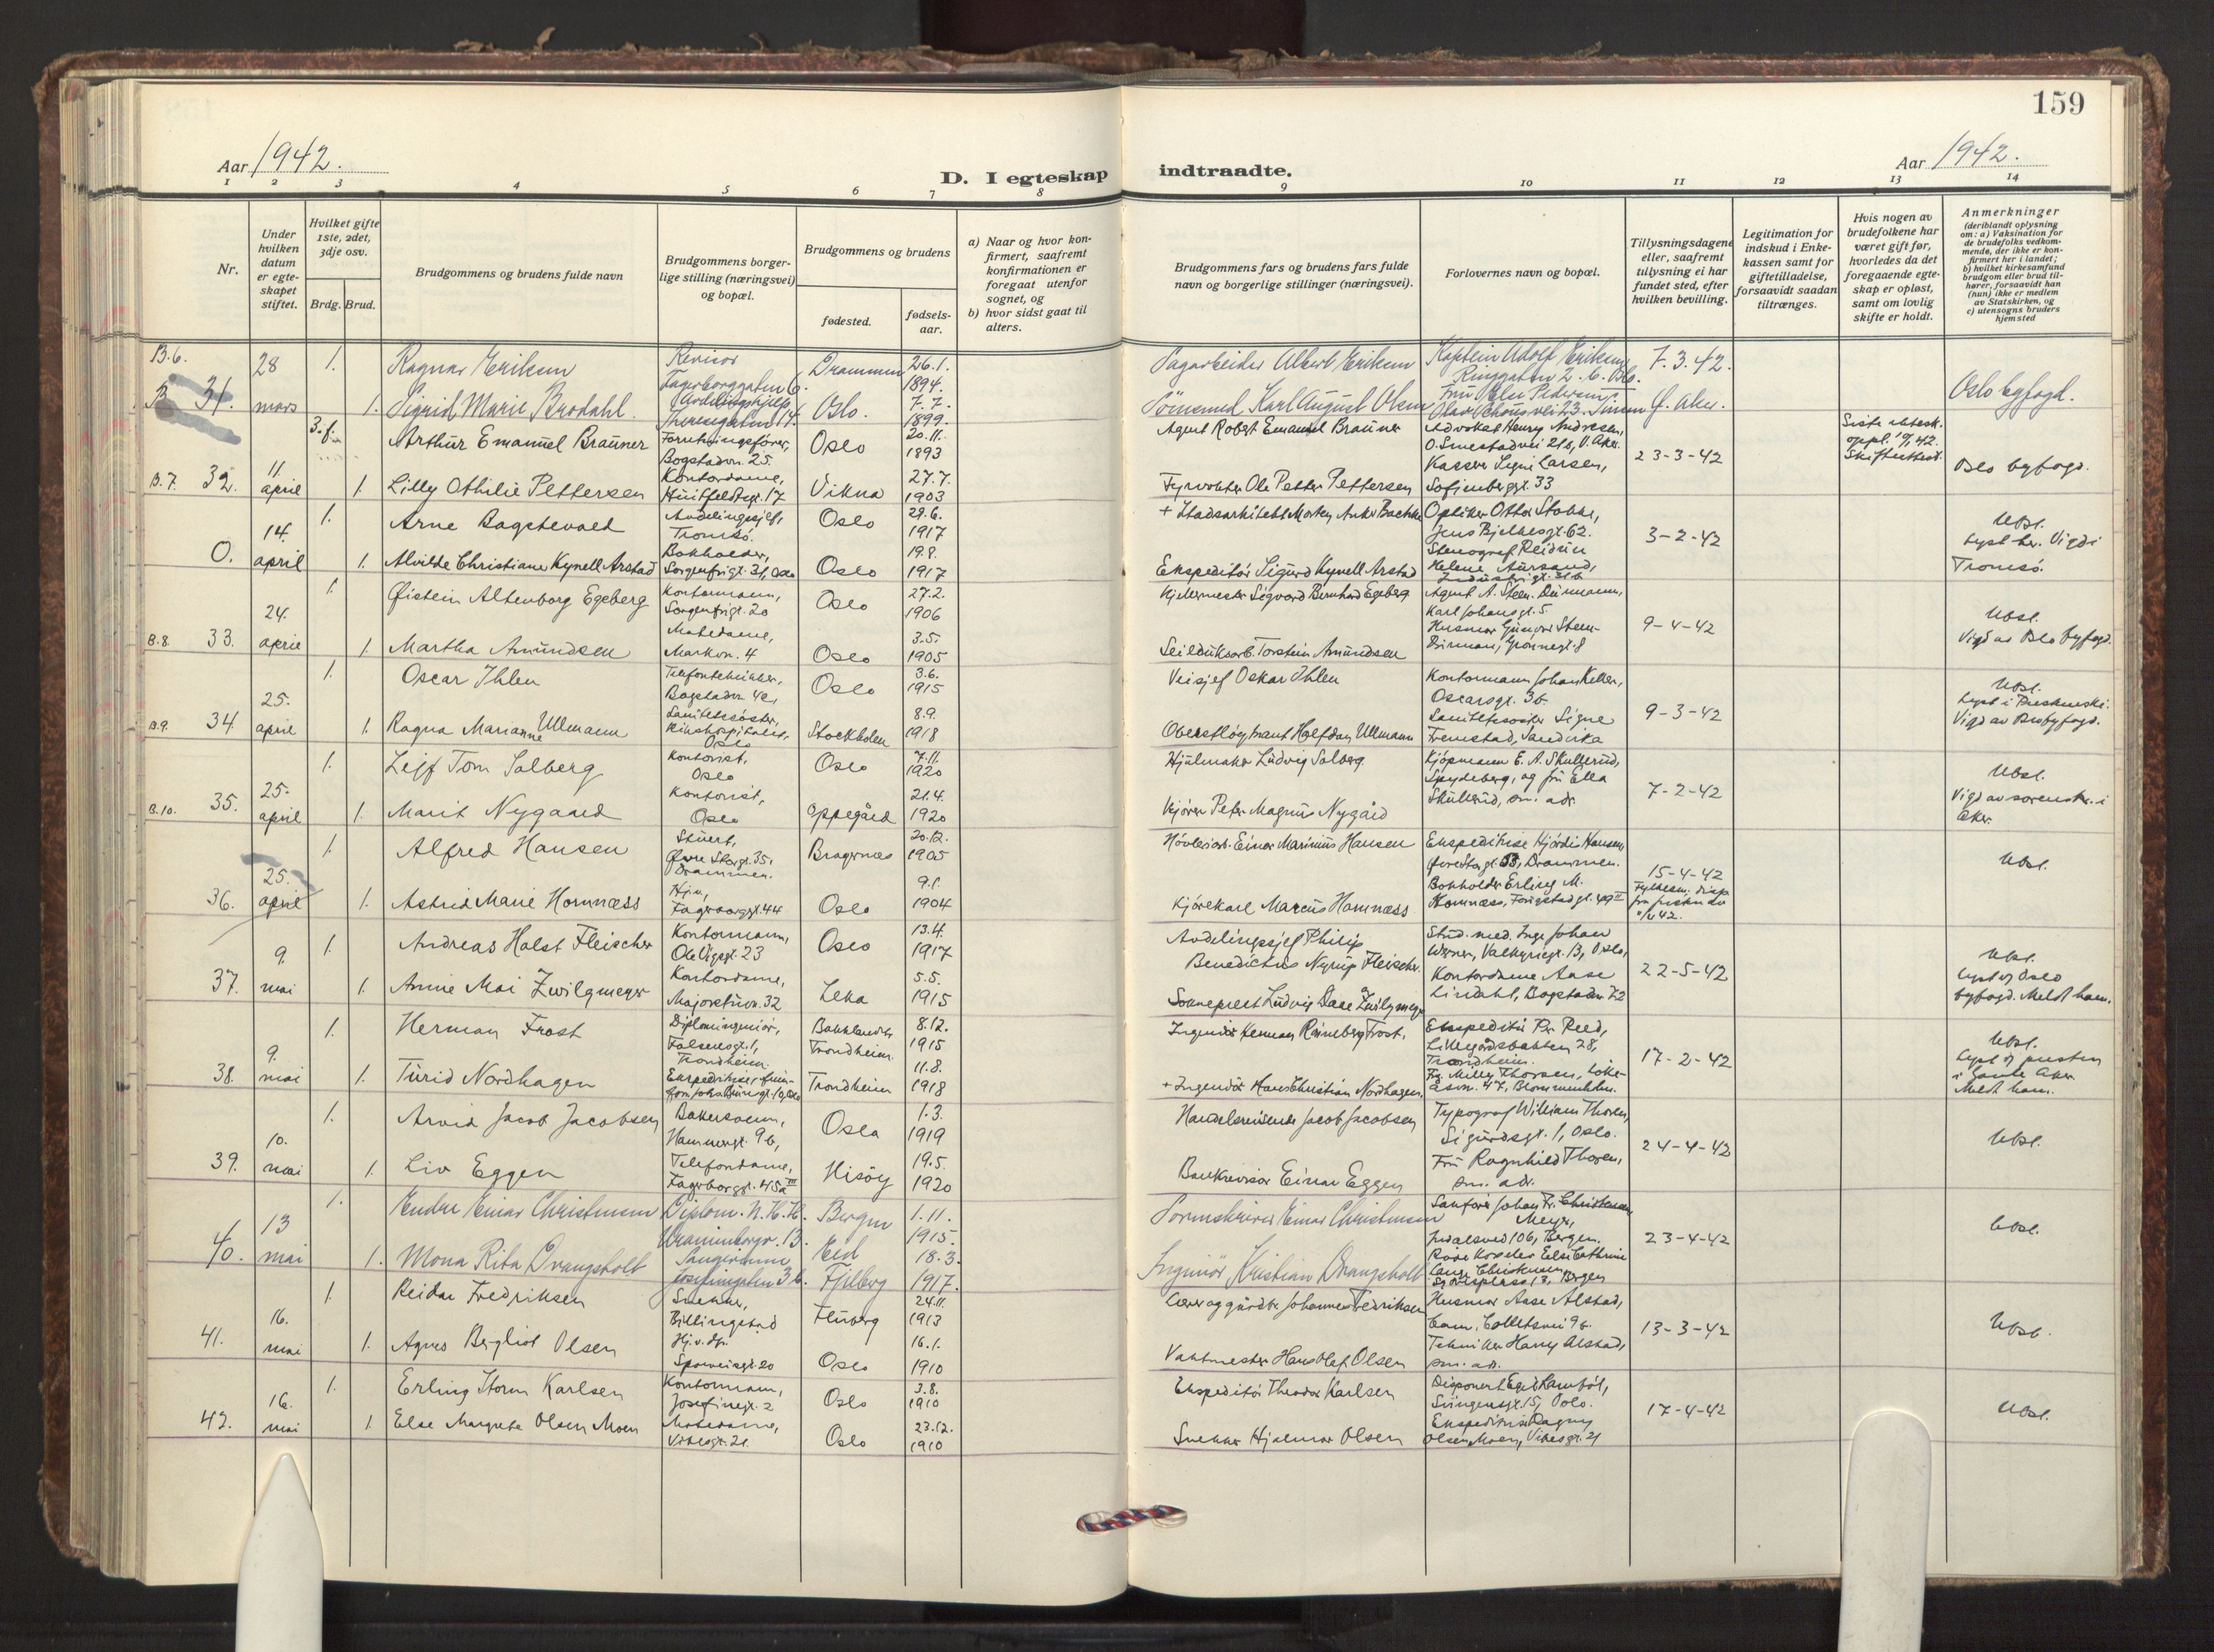 159
Aar 1942.
D. I egteskap indtraadte.
Aar 1942.
1 2 3 4 5 6 7 8 9 10 11 12 13 14
Nr.
Under hvilken datum er egteskapet stiftet.
Hvilket gifte 1ste, 2det, 3dje osv.
Brdg. Brud.
Brudgommens og brudens fulde navn
Brudgommens borgerlige stilling (næringsvei) og bopæl.
Brudgommens og brudens
fødested.
fødselsaar.
a) Naar og hvor konfirmert, saafremt konfirmationen er foregaat utenfor sognet, og
b) hvor sidst gaat til alters.
Brudgommens fars og brudens fars fulde navn og borgerlige stillinger (næringsvei).
Forlovernes navn og bopæl.
Tillysningsdagene eller, saafremt tillysning ei har fundet sted, efter hvilken bevilling.
Legitimation for indskud i Enkekassen samt for giftetilladelse, forsaavidt saadan tiltrænges.
Hvis nogen av brudefolkene har været gift før, hvorledes da det foregaaende egteskap er opløst, samt om lovlig skifte er holdt.
Anmerkninger
(deriblandt oplysning om: a) Vaksination for de brudefolks vedkommende, der ikke er konfirmert her i landet;
b) hvilket kirkesamfund brudgom eller brud tilhører, forsaavidt han (hun) ikke er medlem av Statskirken, og
c) utensogns bruders hjemsted
B.6. 31. 28 mars
1. Ragnar Eriksen Revisor Fagerborggaten 6. Drammen 26.1. 1894. Sagarbeider Albert Eriksen Kaptein Adolf Eriksen, Ringgaten 2.b. Oslo. 7.3.42.
1. Sigrid Marie Brodahl. Theresegaten 14. Oslo. 7.7. 1899. Karl August Olsen Fru Elen Pedersen Ø. Aker. Oslo byfogd.
B.7. 32. 11 april
3.f. Arthur Emanuel Brauner Forretningsfører, Bogstadvn. 25. Oslo 20.11. 1893 Agent Robert Emanuel Brauner Advokat Henry Andresen, O. Smestadvei 21b, V. Aker. 23-3-42 Skifteattest.
1. Lilly Othilie Pettersen Kontordame, Huitfeldtsgt. 17 Vikna 27.7. 1903 Fyrvokter Ole Petter Pettersen Signe Larsen, Sofienberggt. 33 Oslo byfogd.
0. 14. april
1. Arne Avdelingssjef, Tromsö. Oslo 29.6. 1917 + Stadsarkitekt Morten Anker Optiker Otto Stokke, Jens Bjelkesgt. 62. 3-2-42 Ubsl.
1. Alvilde Christiane Kynell Arstad Bokholder, Sorgenfrigt. 31, Oslo Oslo 19.8. 1917 Ekspeditör Sigurd Kynell Arstad Stenograf Reidun Helene Aursand, Industrigt. 31b Lyst her. Vigd i Tromsö.
B.8. 33. 24. april
1. Øistein Altenborg Egeberg Kontormann, Sorgenfrigt. 20 Oslo 27.2. 1906 Kjellermester Sigvard Bernhard Egeberg Agent A. Steen-Deinmann, Karl Johansgt. 5. 9-4-42 Ubsl.
1. Martha Amundsen Motedame, Markvn. 4 Oslo 3.5. 1905 Seilduksarb. Torstein Amundsen Husmor Gunvor Steen- Grønnegt. 8 Vigd av Oslo byfogd.
B.9. 34. 25. april
1. Oscar Ihlen Telefontekniker, Bogstadvn. Oslo 3.6. 1915 Veisjef Oskar Ihlen Kontormann Johan Keller, Oscarsgt. 36 9-3-42 Ubsl.
1. Ragna Marianne Ullmann Sanitetssöster, Rikshospitalet, Oslo Stockholm 8.9. 1918 Oberstlöytnant Halfdan Ullmann Sanitetssöster Signe Fremstad, Sandvika Vigd av Oslo byfogd.
B.10. 35. 25. april
1. Leif Tom Solberg Kontorist, Oslo Oslo 7.11. 1920 Hjulmaker Ludvig Solberg Kjöpmann E. A. Skullerud, Spydeberg, og fru Ella Skullerud, sm. adr. 7-2-42 Ubsl.
1. Marit Nygaard Kontorist, Oslo Oppegård 21.4. 1920 Kjörer Peter Magnus Nygård Vigd av sorenskr. i Aker.
36. 25. april
1. Alfred Hansen Stuert, Øvre Storgt. 35, Drammen. Bragernes 20.12. 1905 Hövleriarb. Einar Marinius Hansen Ekspeditrise Hjördis Hansen, Øvre Storgt. 35, Drammen. 15-4-42 Ubsl.
1. Astrid Marie Hornnæss Hj.v., Fagerborggt. 44 Oslo 9.1. 1904 Kjörekarl Marcus Hornnæss Bokholder Erling M. Hornnæss,
37. 9. mai
1. Andreas Holst Fleischer Kontormann, Ole Vigsgt. 23 Oslo 13.4. 1917 Avdelingssjef Philip Benedictus Nyrup Fleischer. Stud. med. Inge Johan Werner, Valkyriegt. 13, Oslo, 22-5-42 Ubsl.
1. Annie Mai Zwilgmeyer Kontordame, Majorstuvn. 32 Leka 5.5. 1915 Sogneprest Ludvig Daae Zwilgmeyer Kontordame Aase Lindahl, Bogstadvn 72 Lyst og Oslo byfogd. Meldt ham.
38. 9. mai
1. Herman Frost Diplomingeniör, Falsensgt. 1, Trondheim. Baklandet, Trondheim. 8.12. 1915 Ingeniör Herman Reineberg Frost. Ekspeditör Per Reed, Lillegårdsbakken 28, Trondheim. 17-2-42 Ubsl.
1. Turid Nordhagen Trondheim 11.8. 1918 + Ingeniör Hans Christian Nordhagen. Fr. Milly Thorsen, Blommenholm. Meldt ham.
39. 10. mai
1. Arvid Jacob Jacobsen Bakersvenn, Hammergt. 9b, Oslo 1.3. 1919 Handelsreisende Jacob Jacobsen Typograf William Thoren, Sigurdsgt. 1, Oslo. 24-4-42 Ubsl.
1. Liv Eggen Telefondame, Fagerborggt. 45a III Hisöy 19.5. 1920 Bankrevisor Einar Eggen Fru Ragnhild Thoren, sm. adr.
40. 13 mai
1. Endre Einar Christensen Diplom. N.H.H. 13. Bergen 1.11. 1915. Sorenskriver Einar Christensen Meyer, 106, Bergen. 23-4-42 Ubsl.
1. Mona Rita Drangsholt Josefinegaten 36. Eid Fjelberg 18.3. 1917. Ingeniör Kristian Drangsholt Bergen
41. 16. mai
1. Reidar Fredriksen Snekker, Billingstad Fluberg 24.11. 1913 Lærer og gårdbr. Johannes Fredriksen Husmor Aase Alstad, Cam. Colletsvei 9b. 13-3-42 Ubsl.
1. Agnes Bergliot Olsen Hj.v.dt. Sporveisgt. 20 Oslo 16.1. 1910 Vaktmester Hans Olaf Olsen Tekniker Harry Alstad, sm. adr.
42. 16. mai
1. Erling Storm Karlsen Kontormann, Josefinegt. 2 Oslo 3.8. 1910 Ekspeditör Theodor Karlsen Disponent Egil Ramfôl, Suhmsgt. 15, Oslo. 17-4-42 Ubsl.
1. Else Margrete Olsen Moen Motedame, Vibesgt. 21. Oslo 23.12. 1910 Snekker Hjalmar Olsen Ekspeditrise Dagny Olsen Moen, Vibesgt. 21